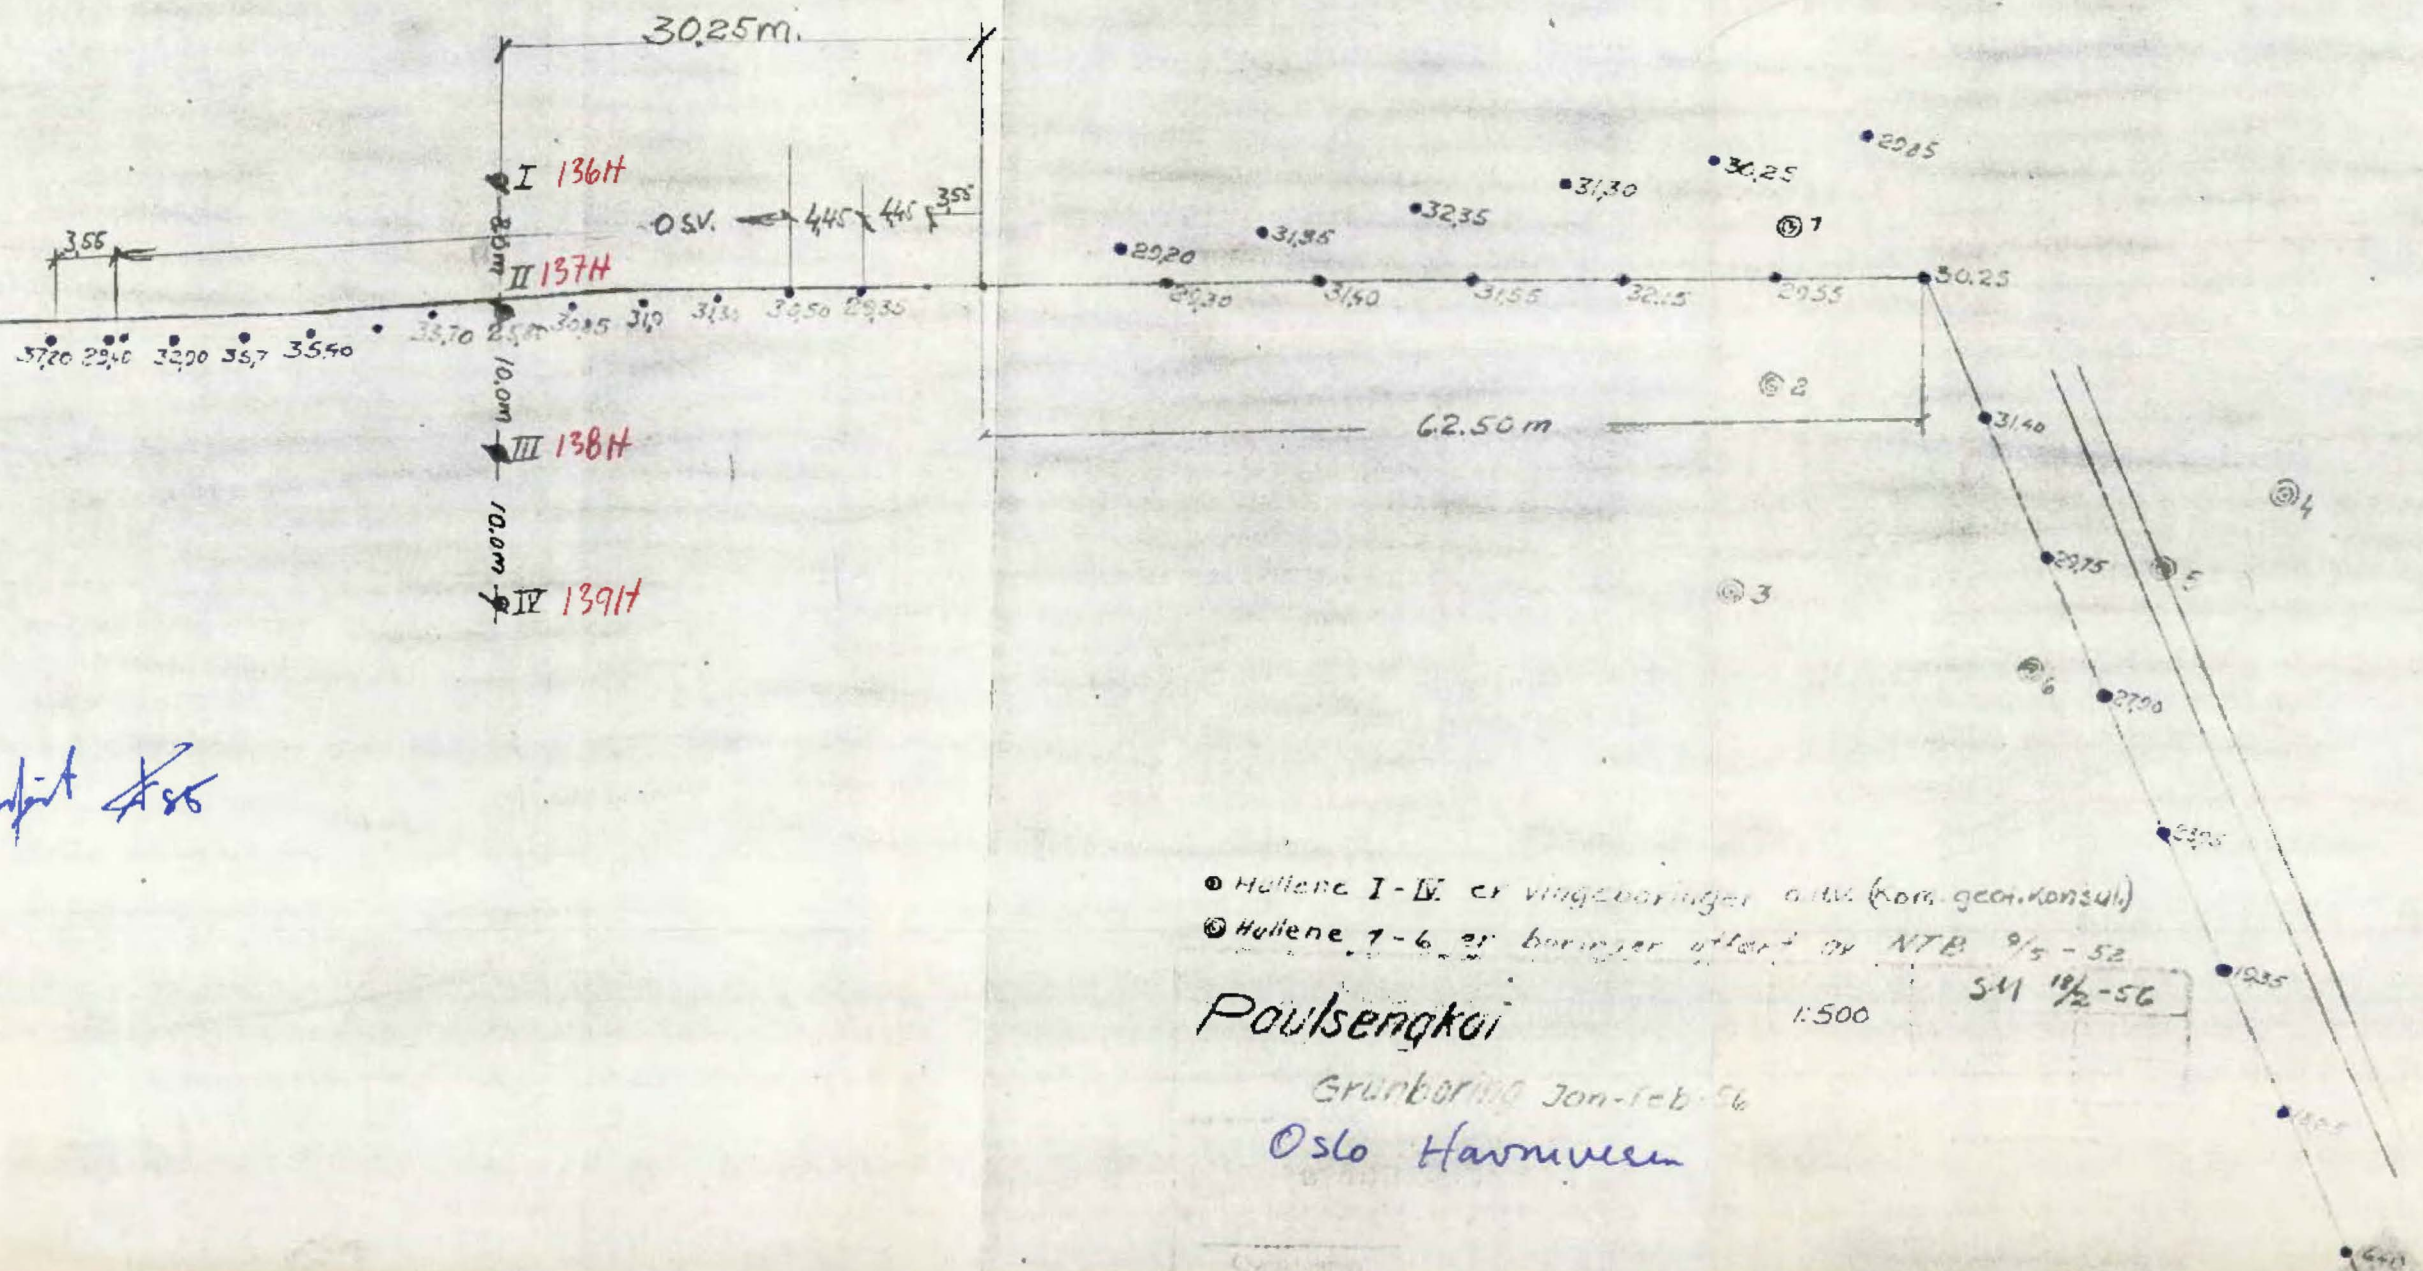 30.25m.
I 136H
8.0m
II 137H
10.0m
III 138H
10.0m
IV 139H
3,55
O.S.V. 4,45 4,45 3,55
37,20 29,40 32,90 35,7 35,40 33,70 25,80 30,85 31,9 31,30 30,50 29,35
29,20 31,95 32,35 31,30 30,25 29,85
29,30 31,40 31,55 32,15 29,55 30.25
1
2
3
4
5
6
62.50 m
31,40
29,75
27,90
23,95
19,35
Hullene I - IV er vingeboringer (kom. geot. konsul.)
Hullene 1-6 er boringer utført av NTB 9/5 - 52
SM 18/2 - 56
Paulsengkai
1:500
Grunboring Jan-feb 56
Oslo Havnevesen